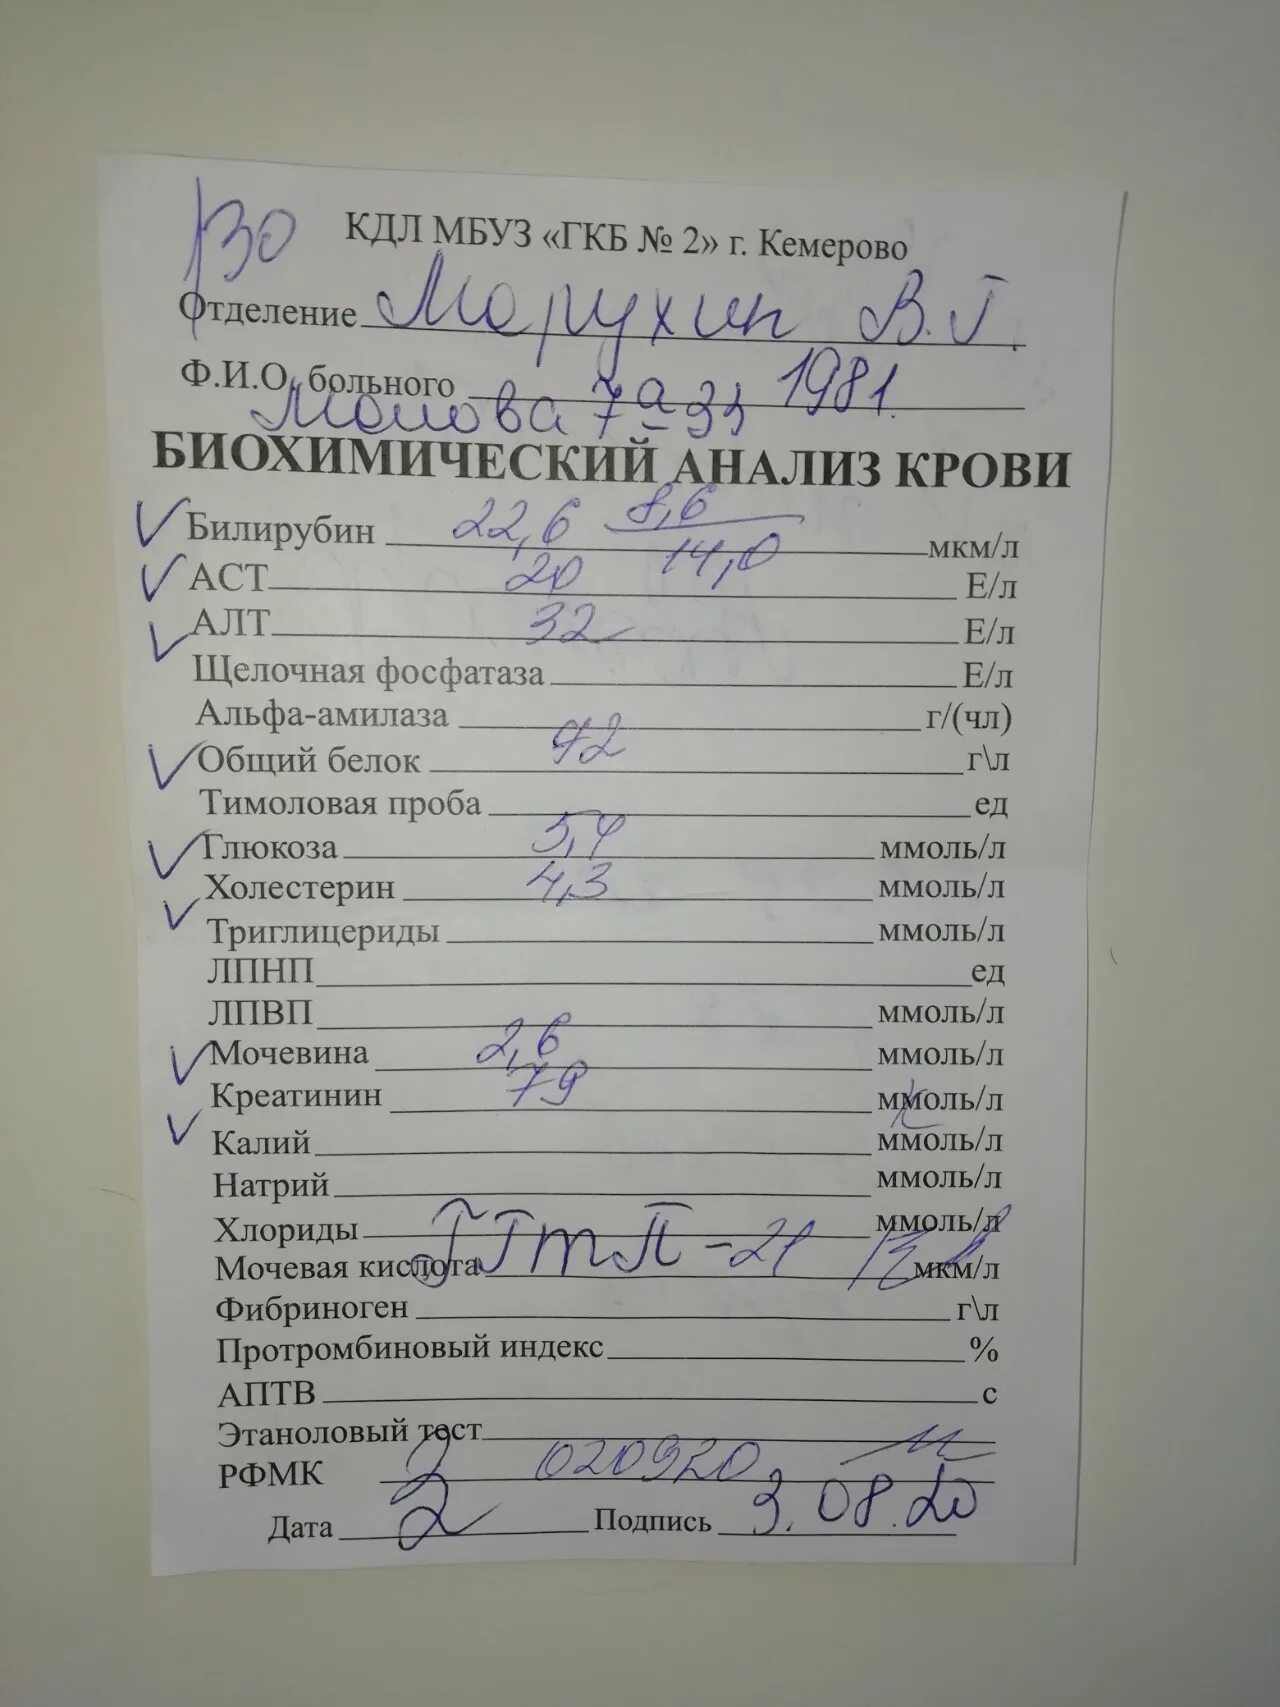 130
КДЛ МБУЗ «ГКБ № 2» г. Кемерово
Отделение Морухин В.Г.
Ф.И.О. больного 1981.
7а-33
БИОХИМИЧЕСКИЙ АНАЛИЗ КРОВИ
Билирубин 22,6 8,6 14,0 мкм/л
АСТ 20 Е/л
АЛТ 32 Е/л
Щелочная фосфатаза Е/л
Альфа-амилаза г/(чл)
Общий белок 72 г\л
Тимоловая проба ед
Глюкоза 5,4 ммоль/л
Холестерин 4,3 ммоль/л
Триглицериды ммоль/л
ЛПНП ед
ЛПВП ммоль/л
Мочевина 2,6 ммоль/л
Креатинин 79 ммоль/л
Калий ммоль/л
Натрий ммоль/л
Хлориды ммоль/л
ГГТП - 21
Мочевая кислота мкм/л
Фибриноген г\л
Протромбиновый индекс %
АПТВ с
Этаноловый тест
РФМК 2 020920
Дата 2 Подпись 3.08.20